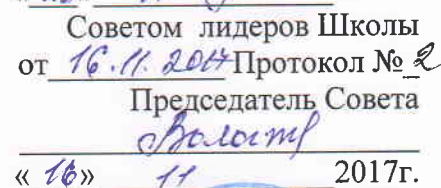 Советом лидеров Школы
от 16.11.2017 Протокол № 2
Председатель Совета
« 16» 11 2017г.